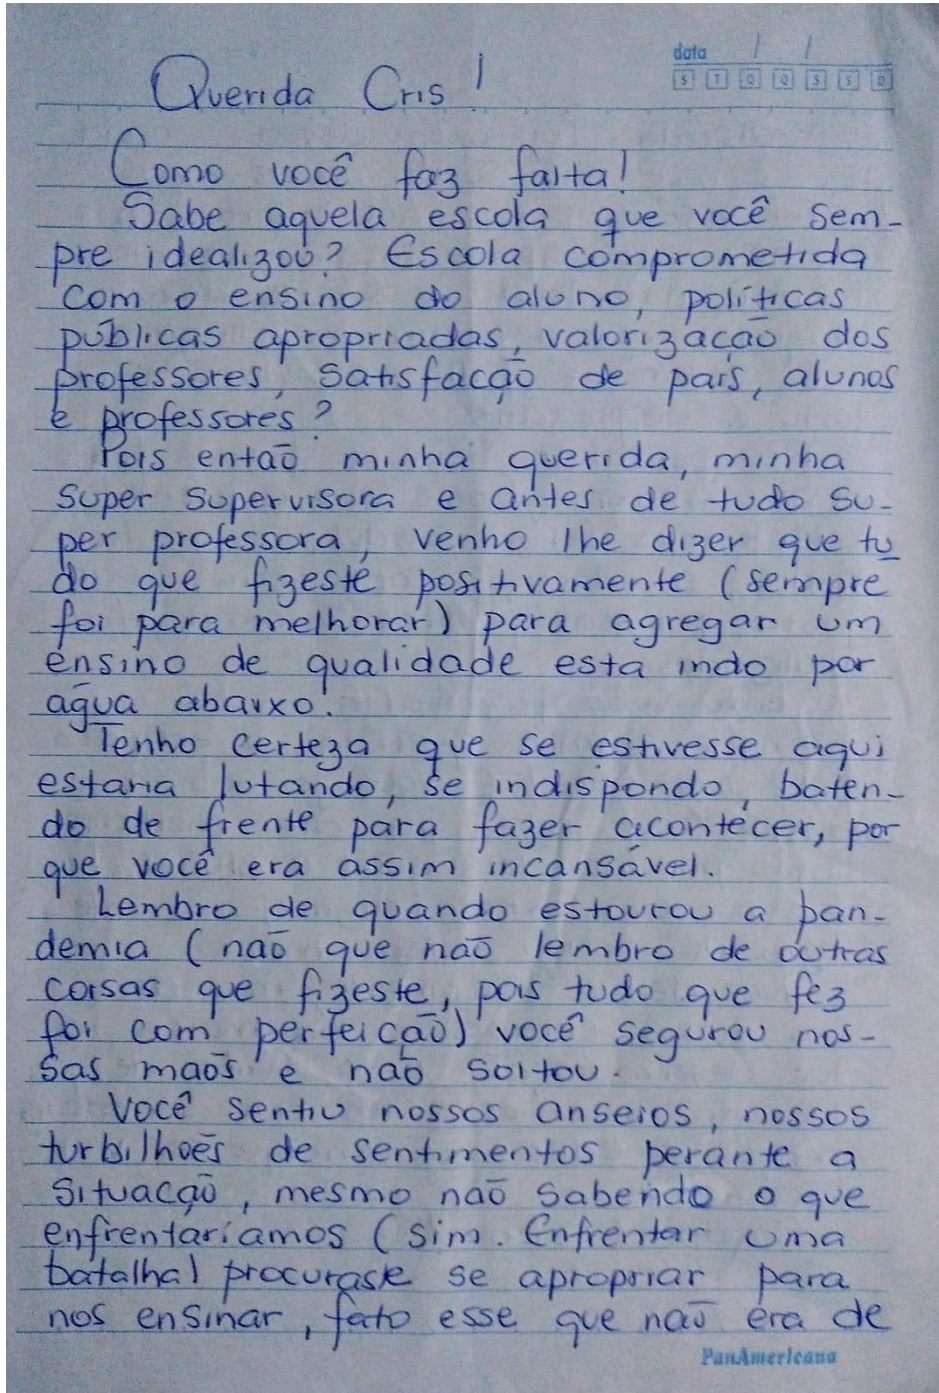 data / /
S T Q Q S S D
Querida Cris!
Como você faz falta!
Sabe aquela escola que você sem-
pre idealizou? Escola comprometida
com o ensino do aluno, políticas
públicas apropriadas, valorização dos
professores, satisfação de pais, alunos
e professores?
Pois então minha querida, minha
super supervisora e antes de tudo su-
per professora, venho lhe dizer que tu
do que fizeste positivamente (sempre
foi para melhorar) para agregar um
ensino de qualidade esta indo por
água abaixo.
Tenho certeza que se estivesse aqui
estaria lutando, se indispondo, baten-
do de frente para fazer acontecer, por
que você era assim incansável.
Lembro de quando estourou a pan-
demia (não que não lembro de outras
coisas que fizeste, pois tudo que fez
foi com perfeição) você segurou nos-
sas mãos e não soltou.
Você sentiu nossos anseios, nossos
turbilhões de sentimentos perante a
situação, mesmo não sabendo o que
enfrentaríamos (sim. Enfrentar uma
batalha) procurase se apropriar para
nos ensinar, fato esse que não era de
PanAmericana